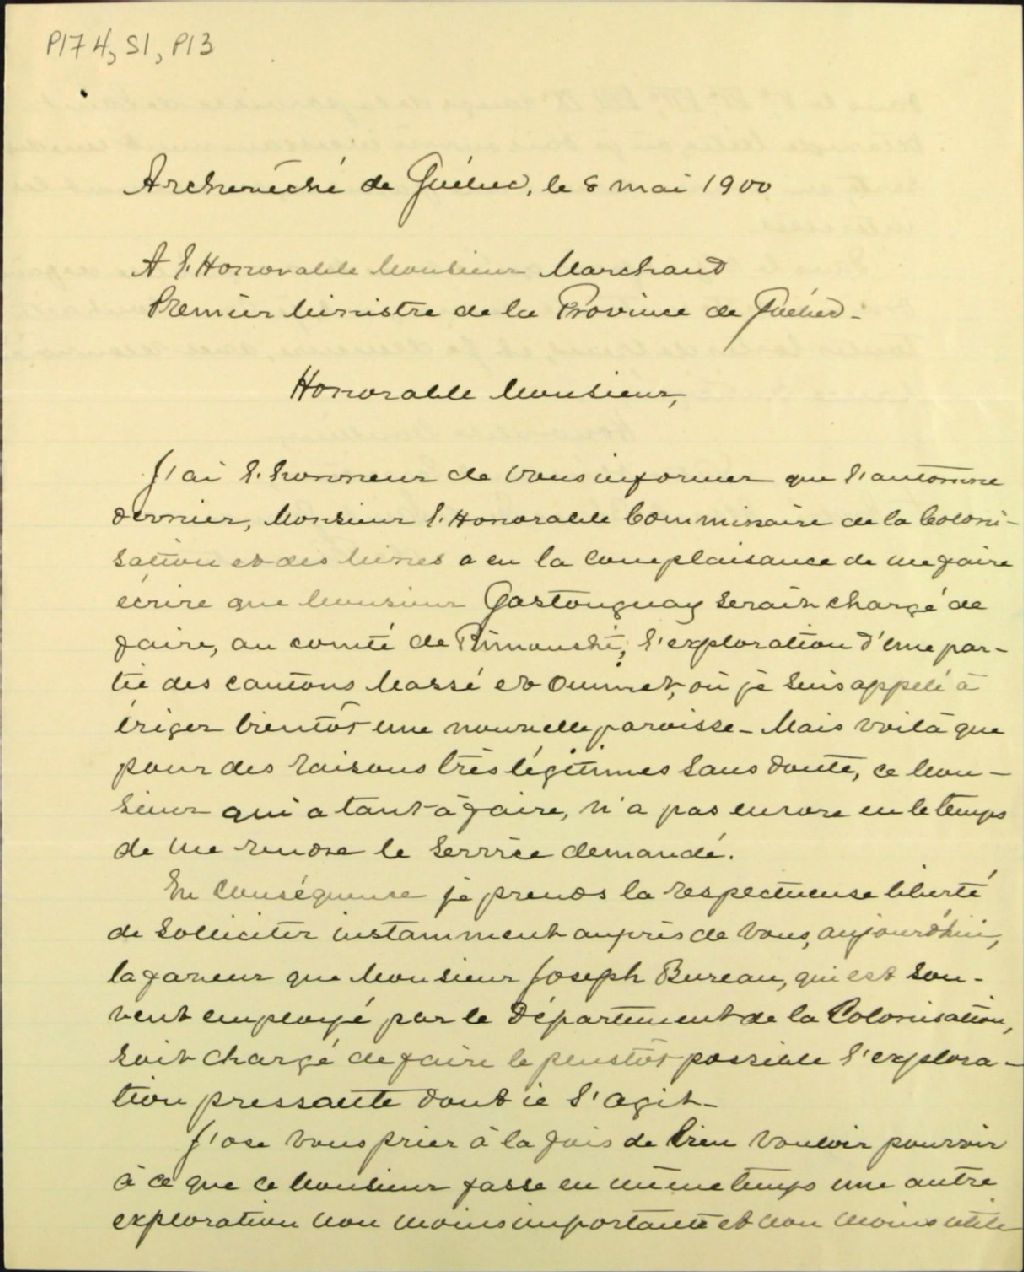 P174, S1, P13
Archevêché de Québec, le 8 mai 1900
A l'Honorable Monsieur Marchand
Premier Ministre de la Province de Québec.
Honorable Monsieur,
J'ai l'honneur de vous informer que l'automne
dernier, Monsieur l'Honorable Commissaire de la Coloni-
sation et des Mines a eu la complaisance de me faire
écrire que Monsieur Gastonguay serait chargé de
faire, au comté de Rimouski, l'exploration d'une par-
tie des cantons Massé et Ouimet, où je suis appelé à
ériger bientôt une nouvelle paroisse. Mais voilà que
pour des raisons très légitimes sans doute, ce Mon-
sieur qui a tant à faire, n'a pas encore eu le temps
de me rendre le service demandé.
En conséquence je prends la respectueuse liberté
de solliciter instamment auprès de vous, aujourd'hui,
la faveur que Monsieur Joseph Bureau, qui est sou-
vent employé par le Département de la Colonisation,
soit chargé de faire le plus tôt possible l'explora-
tion pressante dont il s'agit.
J'ose vous prier à la fois de bien vouloir pourvoir
à ce que ce Monsieur fasse en même temps une autre
exploration non moins importante et non moins utile